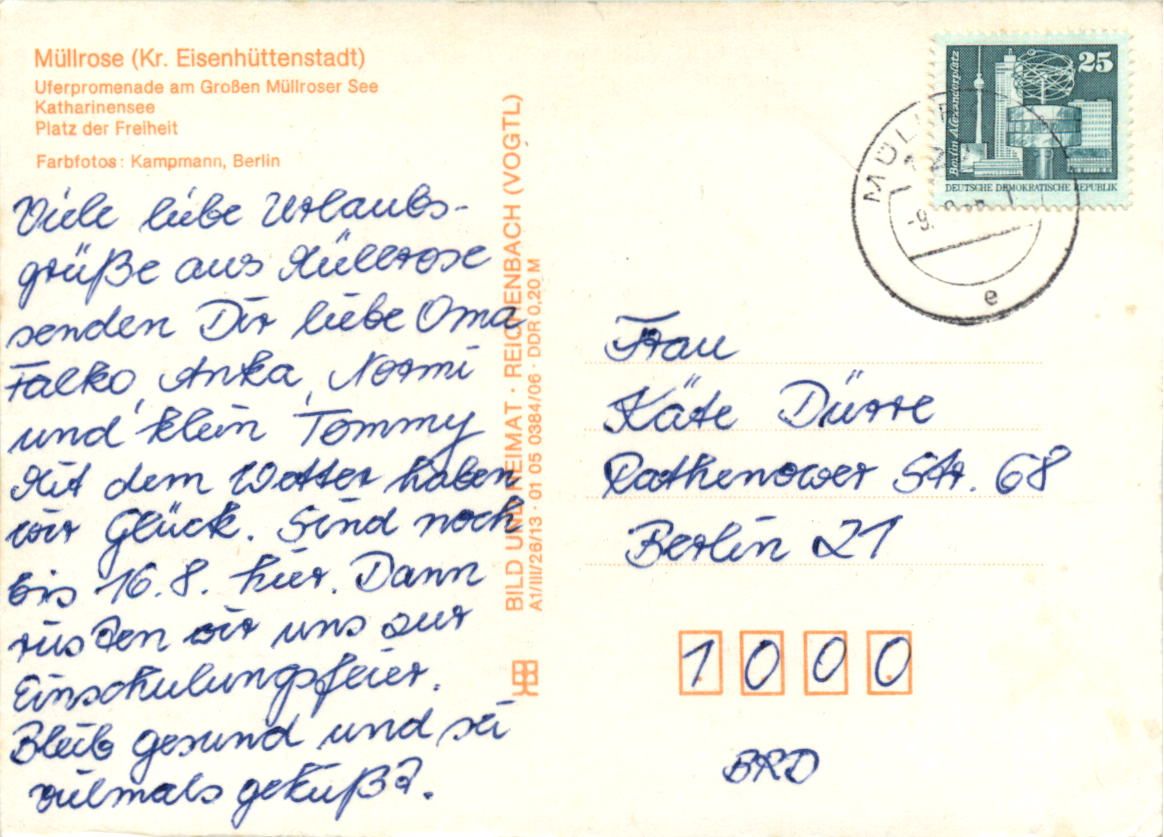 Müllrose (Kr. Eisenhüttenstadt)
Uferpromenade am Großen Müllroser See
Katharinensee
Platz der Freiheit
Farbfotos: Kampmann, Berlin
Viele liebe Urlaubs-
grüße aus Müllrose
senden Dir liebe Oma
Falko, Anka, Normi
und klein Tommy
Mit dem Wetter haben
wir Glück. Sind noch
bis 16.8. hier. Dann
rüsten wir uns zur
Einschulungsfeier.
Bleib gesund und sei
vielmals geküßt.
BILD UND HEIMAT · REICHENBACH (VOGTL)
A1/III/26/13 · 01 05 0384/06 · DDR 0,20 M
Berlin Alexanderplatz
25
DEUTSCHE DEMOKRATISCHE REPUBLIK
e
Frau
Käte Dürre
Rathenower Str. 68
Berlin 21
1000
BRD